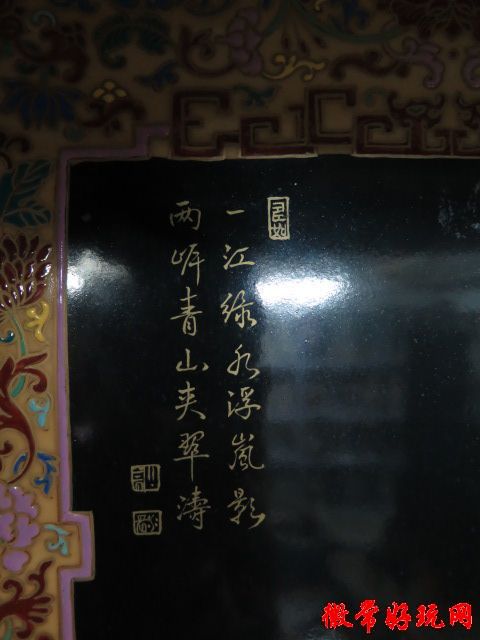 一江绿水浮岚影
两岸青山夹翠涛
徽常好玩网